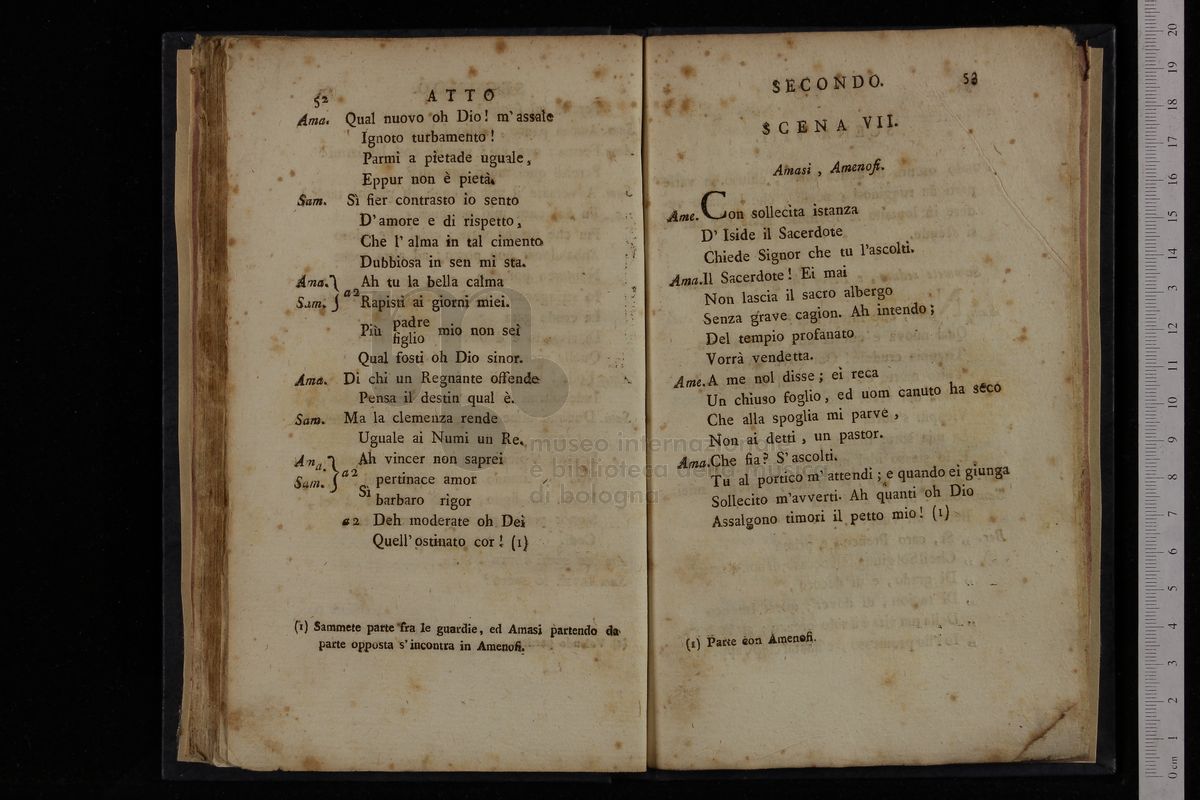 52 ATTO
Ama. Qual nuovo oh Dio! m'assale
Ignoto turbamento!
Parmi a pietade uguale,
Eppur non è pietà.
Sam. Sì fier contrasto io sento
D'amore e di rispetto,
Che l'alma in tal cimento
Dubbiosa in sen mi sta.
Ama. Sam. } a2 Ah tu la bella calma
Rapisti ai giorni miei.
Più padre figlio mio non sei
Qual fosti oh Dio sinor.
Ama. Di chi un Regnante offende
Pensa il destin qual è.
Sam. Ma la clemenza rende
Uguale ai Numi un Re.
Ana. Sam. } a2 Ah vincer non saprei
Sì pertinace amor
barbaro rigor
a2 Deh moderate oh Dei
Quell'ostinato cor! (1)
(1) Sammete parte fra le guardie, ed Amasi partendo da
parte opposta s'incontra in Amenofi.
SECONDO. 53
SCENA VII.
Amasi, Amenofi.
Ame. Con sollecita istanza
D'Iside il Sacerdote
Chiede Signor che tu l'ascolti.
Ama. Il Sacerdote! Ei mai
Non lascia il sacro albergo
Senza grave cagion. Ah intendo;
Del tempio profanato
Vorrà vendetta.
Ame. A me nol disse; ei reca
Un chiuso foglio, ed uom canuto ha seco
Che alla spoglia mi parve,
Non ai detti, un pastor.
Ama. Che fia? S'ascolti.
Tu al portico m'attendi; e quando ei giunga
Sollecito m'avverti. Ah quanti oh Dio
Assalgono timori il petto mio! (1)
(1) Parte con Amenofi.
museo internazionale
e biblioteca della musica
di bologna
0 cm 1 2 3 4 5 6 7 8 9 10 11 12 13 14 15 16 17 18 19 20